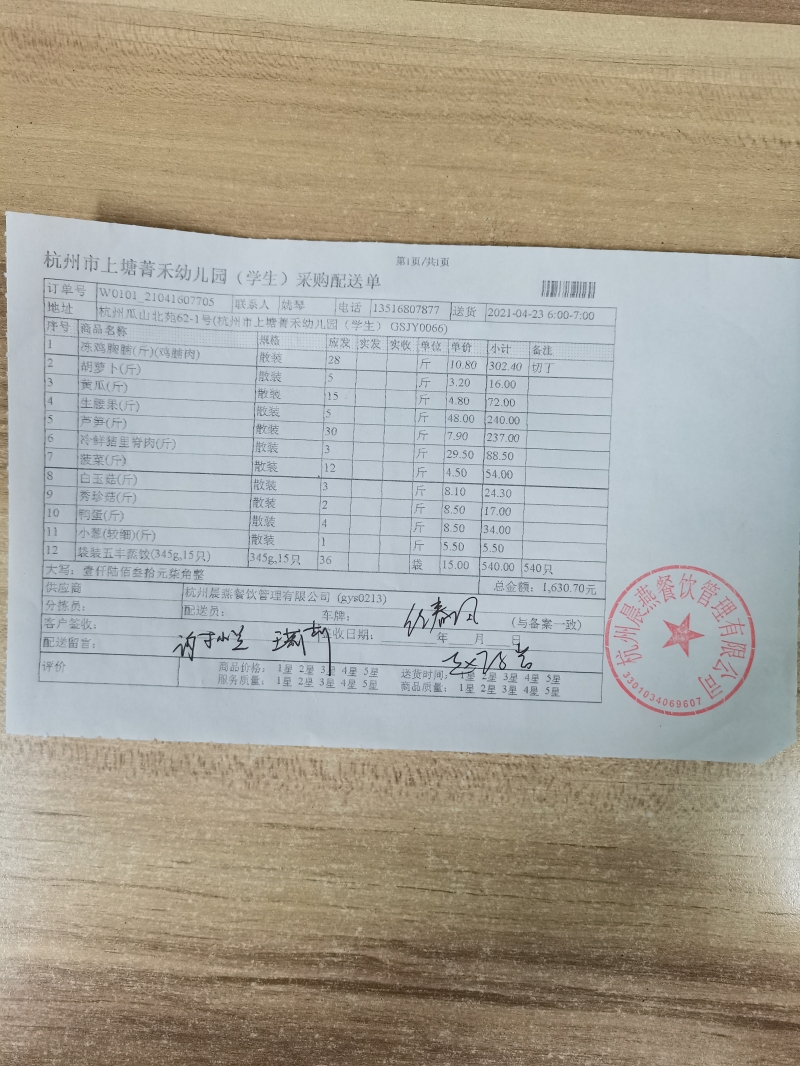 第1页/共1页
杭州市上塘菁禾幼儿园（学生）采购配送单
订单号 W0101_21041607705 联系人 姚琴 电话 13516807877 送货 2021-04-23 6:00-7:00
地址 杭州瓜山北苑62-1号(杭州市上塘菁禾幼儿园（学生） GSJY0066)
序号 商品名称 规格 应发 实发 实收 单位 单价 小计 备注
1 冻鸡胸脯(斤)(鸡脯肉) 散装 28 斤 10.80 302.40 切丁
2 胡萝卜(斤) 散装 5 斤 3.20 16.00
3 黄瓜(斤) 散装 15 斤 4.80 72.00
4 生腰果(斤) 散装 5 斤 48.00 240.00
5 芦笋(斤) 散装 30 斤 7.90 237.00
6 冷鲜猪里脊肉(斤) 散装 3 斤 29.50 88.50
7 菠菜(斤) 散装 12 斤 4.50 54.00
8 白玉菇(斤) 散装 3 斤 8.10 24.30
9 秀珍菇(斤) 散装 2 斤 8.50 17.00
10 鸭蛋(斤) 散装 4 斤 8.50 34.00
11 小葱(较细)(斤) 散装 1 斤 5.50 5.50
12 袋装五丰蒸饺(345g,15只) 345g,15只 36 袋 15.00 540.00 540只
大写：壹仟陆佰叁拾元柒角整 总金额：1,630.70元
供应商 杭州晨燕餐饮管理有限公司 (gys0213)
分拣员： 配送员： 车牌： (与备案一致)
客户签收： 收日期： 年 月 日
配送留言：
评价 商品价格： 1星 2星 3星 4星 5星 送货时间： 1星 2星 3星 4星 5星
服务质量： 1星 2星 3星 4星 5星 商品质量： 1星 2星 3星 4星 5星
杭州晨燕餐饮管理有限公司
3301034069607